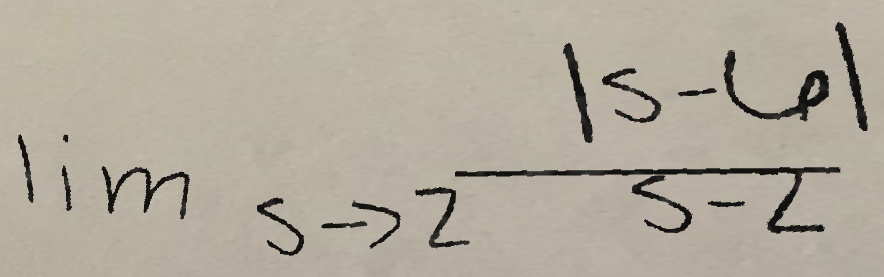 lim s→2 |s-6|
s-2